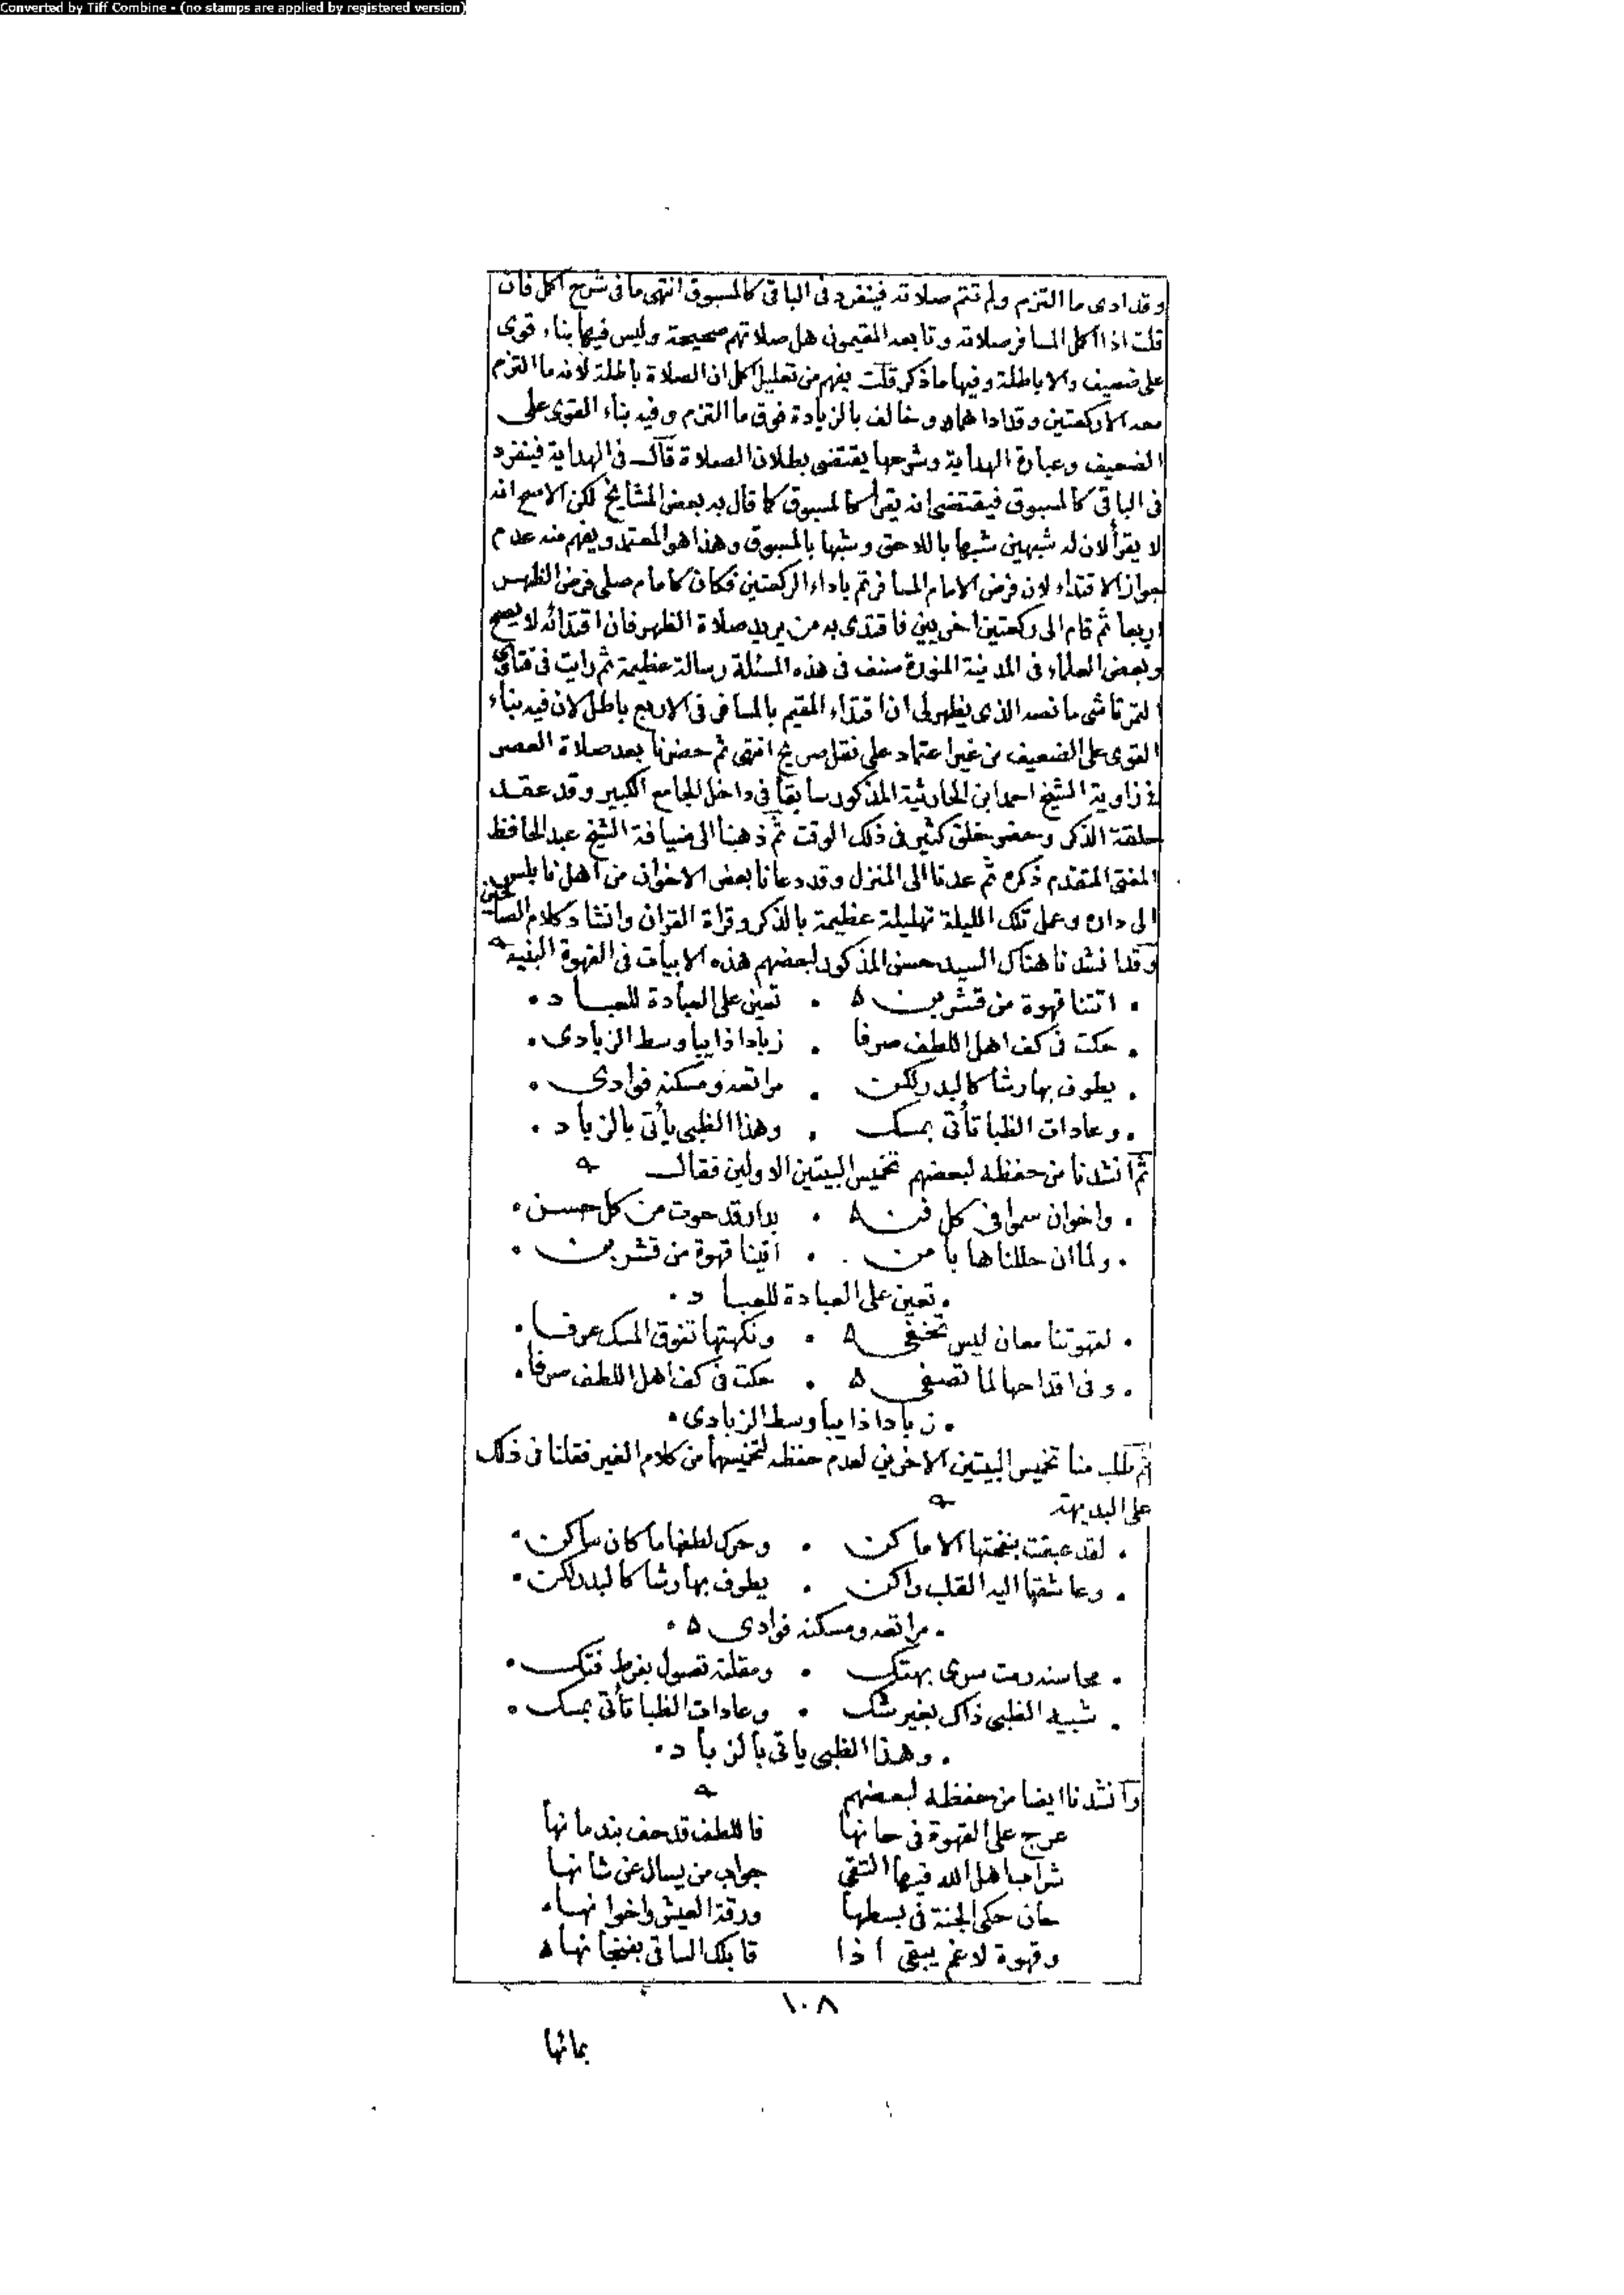 Converted by Tiff Combine - (no stamps are applied by registered version)
وقد ادى ما التزم ولم تتم صلاته فينفرد فى الباقى كالمسبوق انتهى ما فى شرح اكمل فان
قلت اذا اكمل المسافر صلاته وتابعه المقيمون هل صلاتهم صحيحة وليس فيها بناء قوى
على ضعيف والا باطلة وفيها ما ذكر قلت يفهم من تعليل اكمل ان الصلاة باطلة لانه ما التزم
معه الا ركعتين وقد اداهما وخالف بالزيادة فوق ما التزم وفيه بناء القوى على
الضعيف وعبارة الهداية وشرحها يقتضى بطلان الصلاة قال فى الهداية فينفرد
فى الباقى كالمسبوق فيقتضى انه يقرأ كالمسبوق كما قال به بعض المشايخ لكن الاصح انه
لا يقرأ لان له شبهين شبها باللاحق وشبها بالمسبوق وهذا هو المعتمد ويفهم منه عدم
جواز الاقتداء لان فرض الامام المسافر تم باداء الركعتين فكان كامام صلى فرض الظهر
اربعا ثم قام الى ركعتين اخريين فاقتدى به من يريد صلاة الظهر فان اقتدائه لا يصح
وبعض العلماء فى المدينة المنورة صنف فى هذه المسئلة رسالة عظيمة ثم رايت فى فتاوى
التمرتاشى ما نصه الذى يظهر لى ان اقتداء المقيم بالمسافر فى الاربع باطل لان فيه بناء
القوى على الضعيف من غير اعتماد على نقل صريح انتهى ثم حضرنا بعد صلاة العصر
فى زاوية الشيخ احمد ابن الحارثية المذكور سابقا فى داخل الجامع الكبير وقد عقد
حلقة الذكر وحضر خلق كثير فى ذلك الوقت ثم ذهبنا الى ضيافة الشيخ عبد الحافظ
المفتى المتقدم ذكره ثم عدنا الى المنزل وقد دعانا بعض الاخوان من اهل نابلس
الى داره وعمل تلك الليلة تهليلة عظيمة بالذكر وقراة القران وانشاد كلام الصالحين
وقد انشدنا هناك السيد حسن المذكور لبعضهم هذه الابيات فى القهوة البنية
٠ اتتنا قهوة من قشر بن ٠ تعين على العبادة للعباد ٠
٠ حكت فى كف اهل اللطف صرفا ٠ زبادا ذايبا وسط الزبادى ٠
٠ يطوف بها رشا كالبدر لكن ٠ مراتعه ومسكنه فوادى ٠
٠ وعادات الظبا تأتى بمسك ٠ وهذا الظبى يأتى بالزباد ٠
ثم انشدنا من حفظه لبعضهم تخميس البيتين الاولين فقال
٠ واخوان سموا فى كل فن ٠ بدار قد حوت من كل حسن ٠
٠ ولما ان حللناها بامن ٠ اتينا قهوة من قشر بن ٠
٠ تعين على العبادة للعباد ٠
٠ لقهوتنا معان ليس تخفى ٠ ونكهتها تفوق المسك عرفا ٠
٠ وفى اقداحها لما تصفى ٠ حكت فى كف اهل اللطف صرفا ٠
٠ زبادا ذايبا وسط الزبادى ٠
ثم طلب منا تخميس البيتين الاخرين لعدم حفظه لتخميسهما من كلام الغير فقلنا فى ذلك
على البديهة
٠ لقد عبقت بنفحتها الاماكن ٠ وحرك لطفها ما كان ساكن ٠
٠ وعاشقها اليه القلب راكن ٠ يطوف بها رشا كالبدر لكن ٠
٠ مراتعه ومسكنه فوادى ٠
٠ محاسنه رمت سرى بهتك ٠ ومقلته تصول بفرط فتك ٠
٠ شبيه الظبى ذاك بغير شك ٠ وعادات الظبا تأتى بمسك ٠
٠ وهذا الظبى ياتى بالزباد ٠
وانشدنا ايضا من حفظه لبعضهم
عرج على القهوة فى حانها فاللطف قد حف بندمانها
شراب اهل الله فيها التقى جواب من يسال عن شانها
حان حكى الجنة فى بسطها ورقة العيش واخوانها
وقهوة لا غم يبقى اذا قابلك الساقى بفنجانها
١٠٨
بمائها